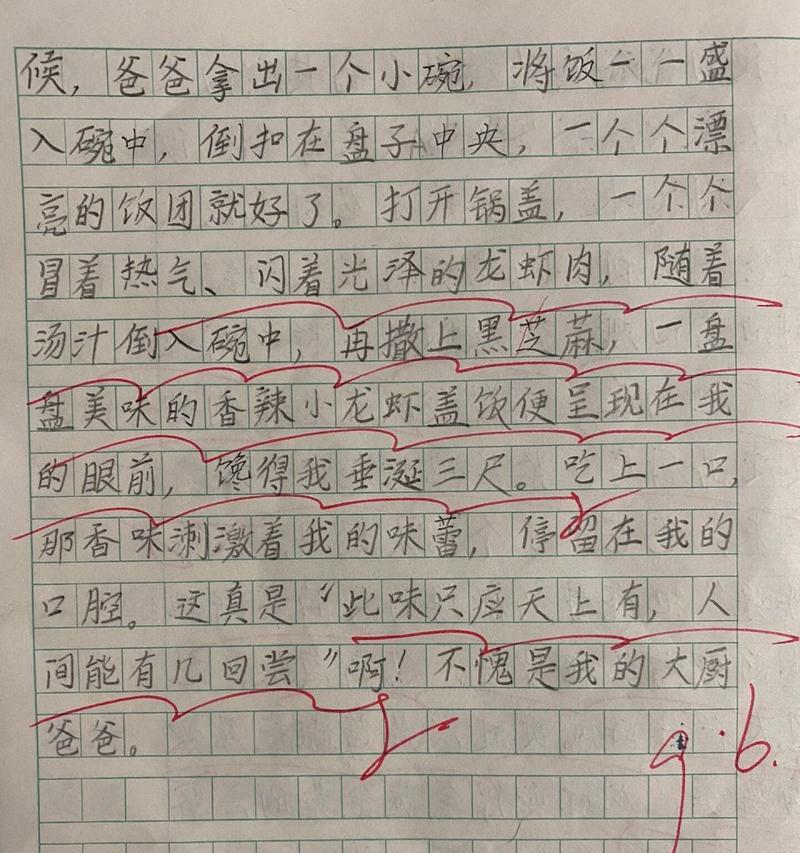 候，爸爸拿出一个小碗，将饭一一盛
入碗中，倒扣在盘子中央，一个个漂
亮的饭团就好了。打开锅盖，一个个
冒着热气、闪着光泽的龙虾肉，随着
汤汁倒入碗中，再撒上黑芝蔴，一盘
盘美味的香辣小龙虾盖饭便呈现在我
的眼前，馋得我垂涎三尺。吃上一口，
那香味刺激着我的味蕾，停留在我的
口腔。这真是“此味只应天上有，人
间能有几回尝”啊！不愧是我的大厨
爸爸。
9.6.